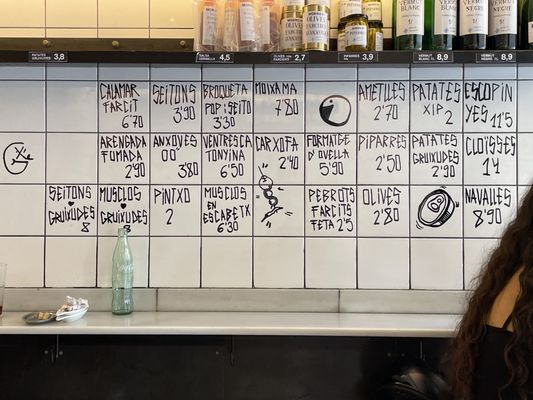 PATATES 3,8
SALSA 4,5
OLIVES FARCIDES 2,7
PIPARRA 3,9
VERMUT BLANC 8,9
VERMUT NEGRE 8,9
CALAMAR
FARCIT
6'70
SEITONS
3'90
BROQUETA
POP I SEITO
3'30
MOIXAMA
7'80
AMETLLES
2'70
PATATES
XIP 2
ESCOPIN
YES 11'5
ARENGADA
FUMADA
2'90
ANXOVES
OO
3'80
VENTRESCA
TONYINA
6'50
CARXOFA
2'40
FORMATGE
D'OVELLA
5'90
PIPARRES
2'50
PATATES
GRUIXUDES
2'90
CLOÏSSES
14
SEITONS
GRUIXUDES
8
MUSCLOS
GRUIXUDES
8
PINTXO
2
MUSCLOS
EN
ESCABETX
6'30
PEBROTS
FARCITS
FETA 2'5
OLIVES
2'80
NAVALLES
8'90